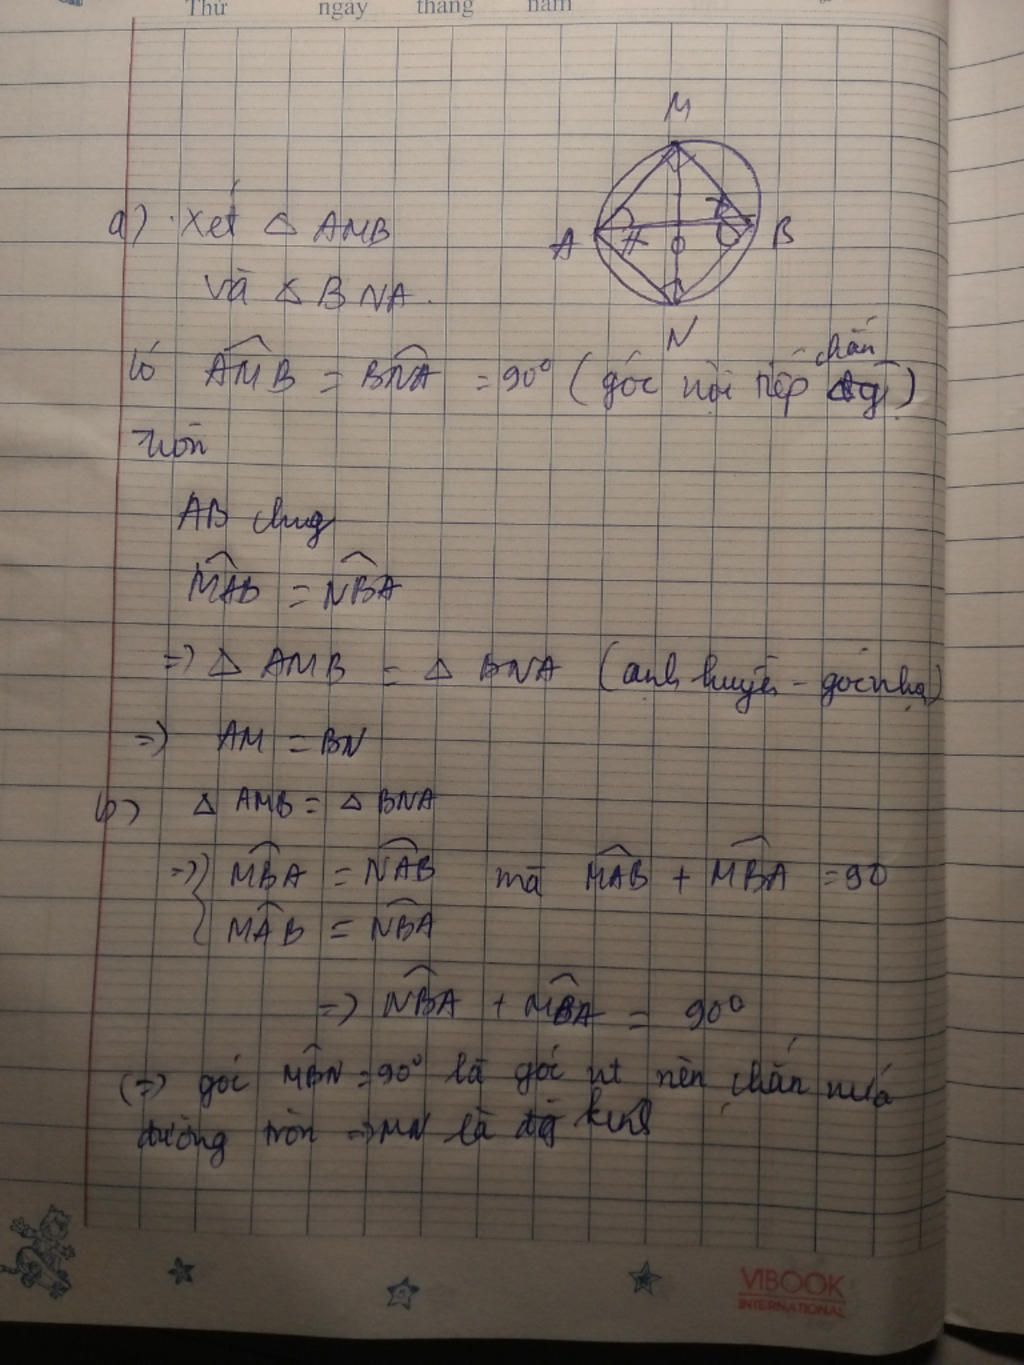 Thứ ngày tháng năm
M
A O B
N
a) Xét △ AMB
và △ BNA.
Có AMB = BNA = 90° (góc nội tiếp chắn đg)
tròn
AB chung
MAB = NBA
=> △ AMB = △ BNA (cạnh huyền - góc nhọ)
=> AM = BN
b) △ AMB = △ BNA
=> { MBA = NAB mà MAB + MBA = 90
MAB = NBA
=> NBA + MBA = 90°
(=> góc MBN = 90° là góc nt nên chắn nửa
đường tròn => MN là đg kính
VIBOOK
INTERNATIONAL